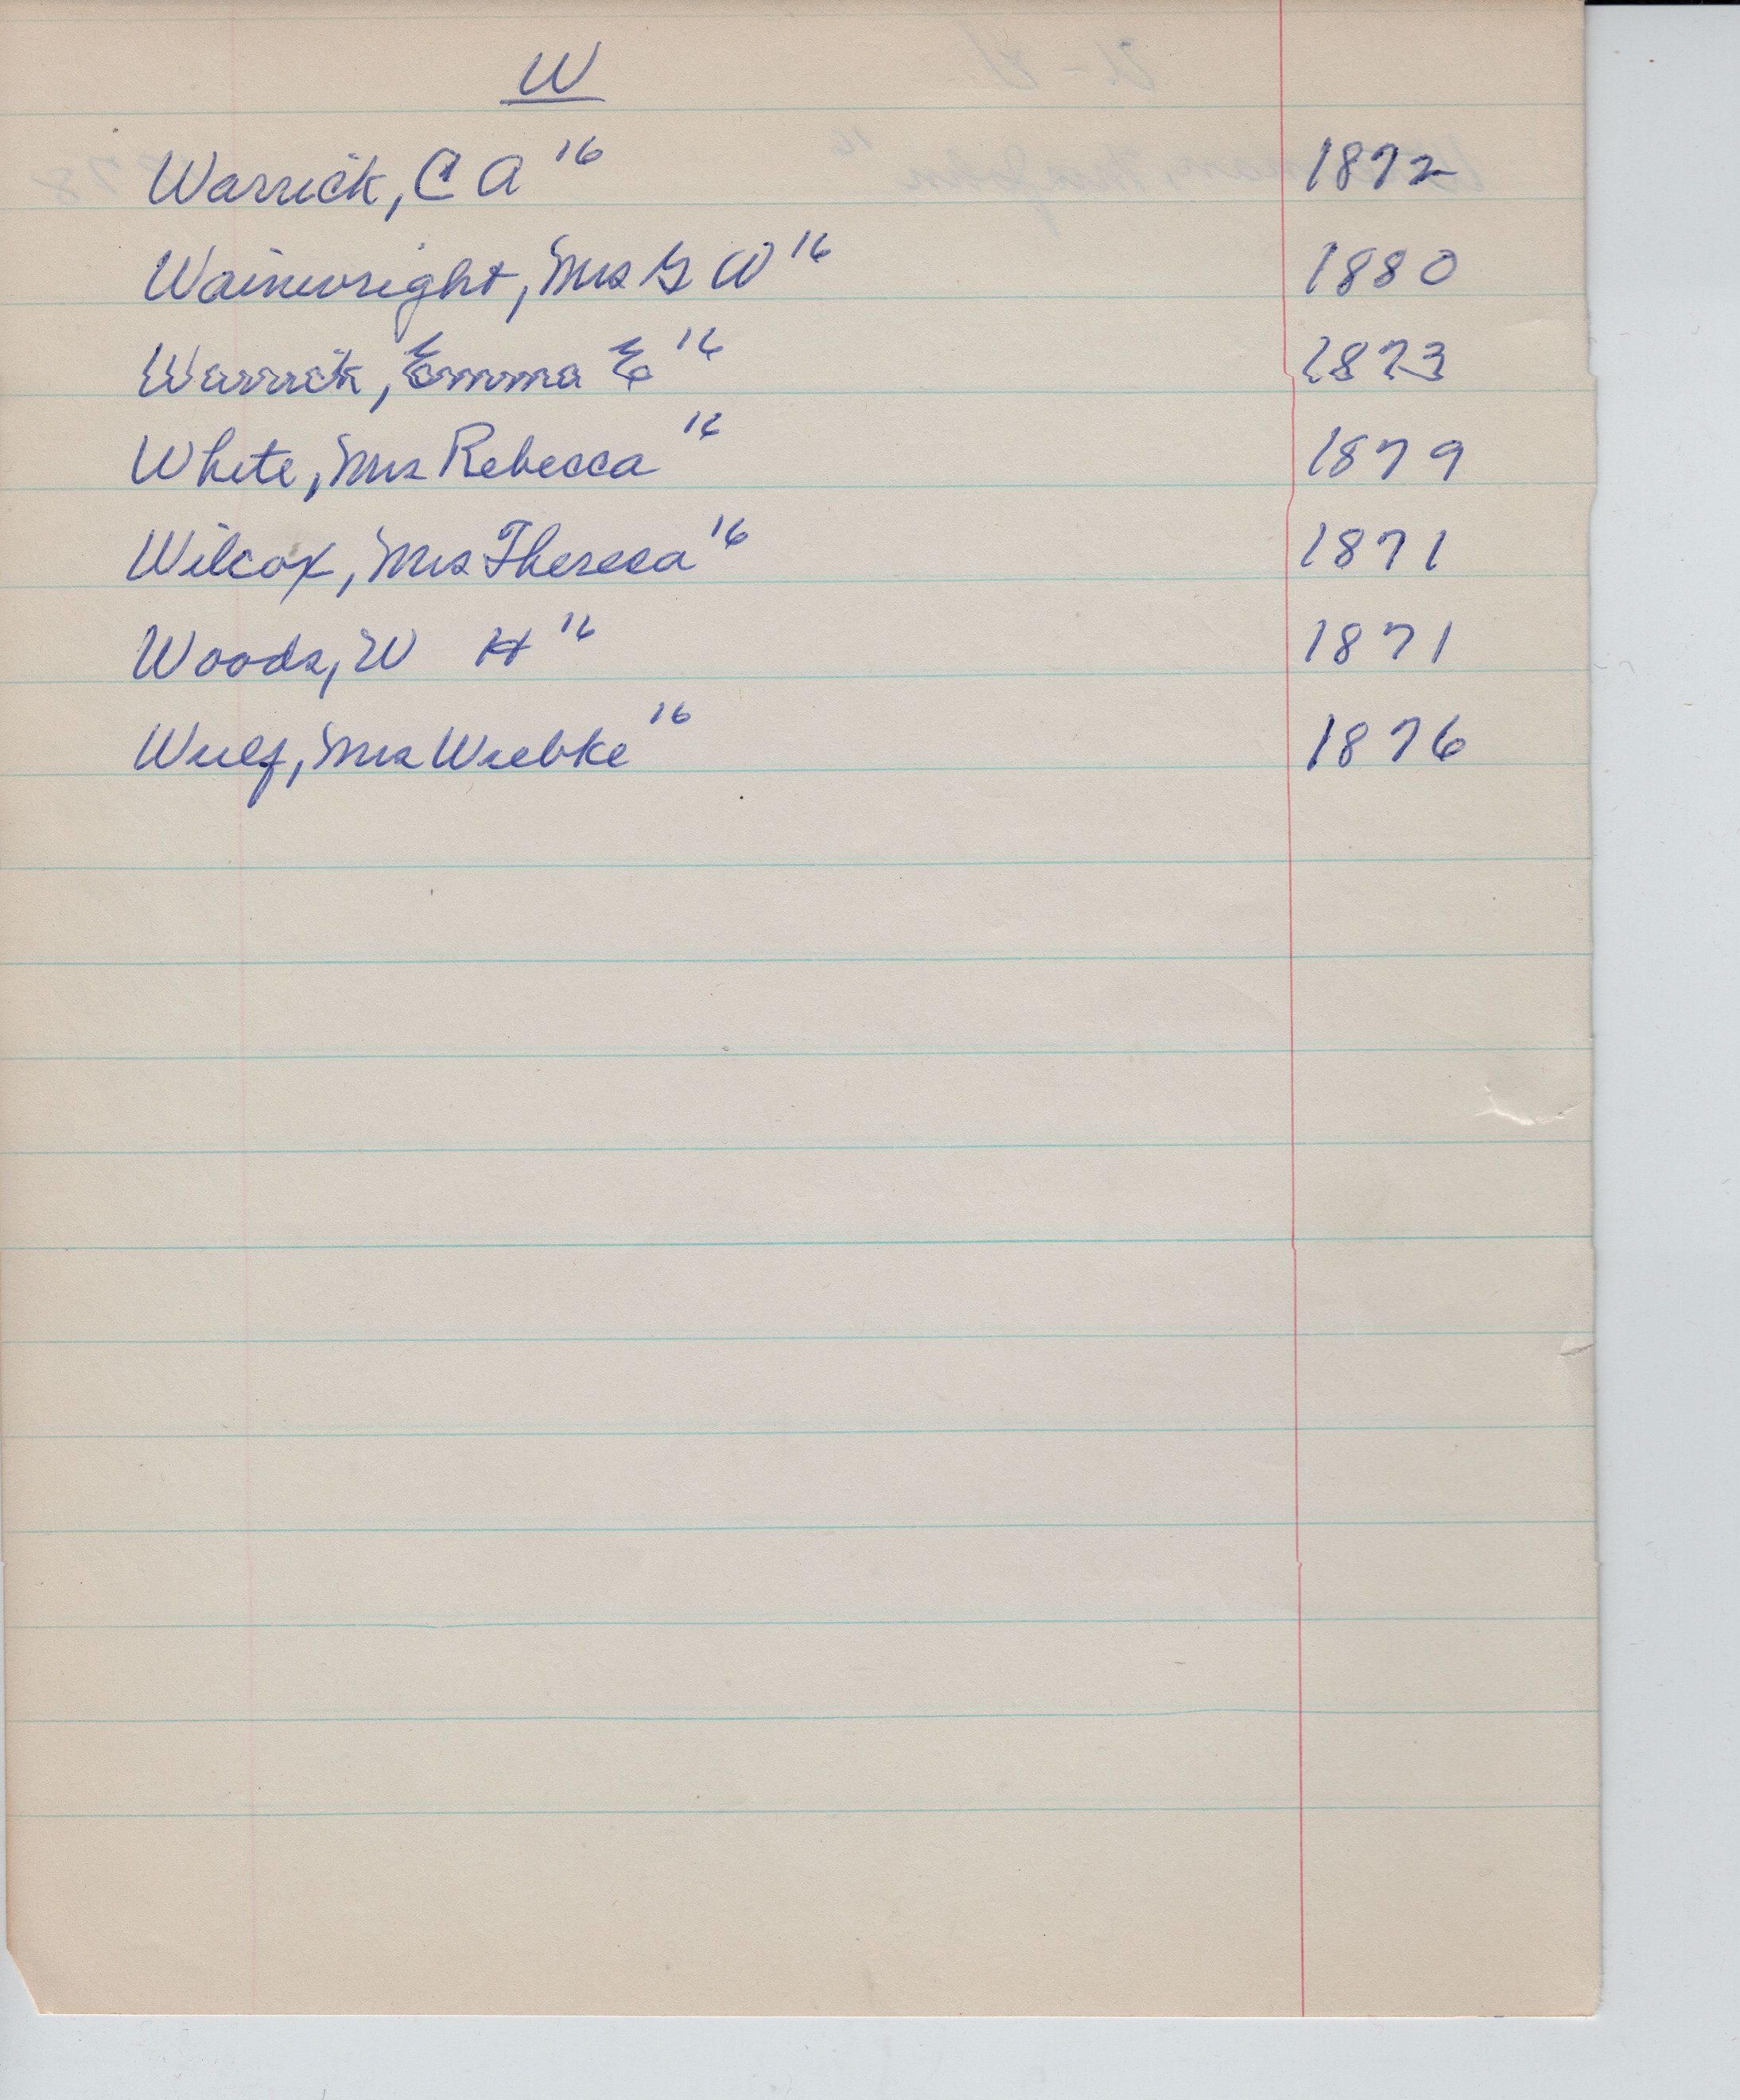 W
Warrick, C A 16 1872
Wainwright, Mrs G W 16 1880
Warrick, Emma E 16 1873
White, Mrs Rebecca 16 1879
Wilcox, Mrs Theresa 16 1871
Woods, W H 16 1871
Wulf, Mrs Wiebke 16 1876